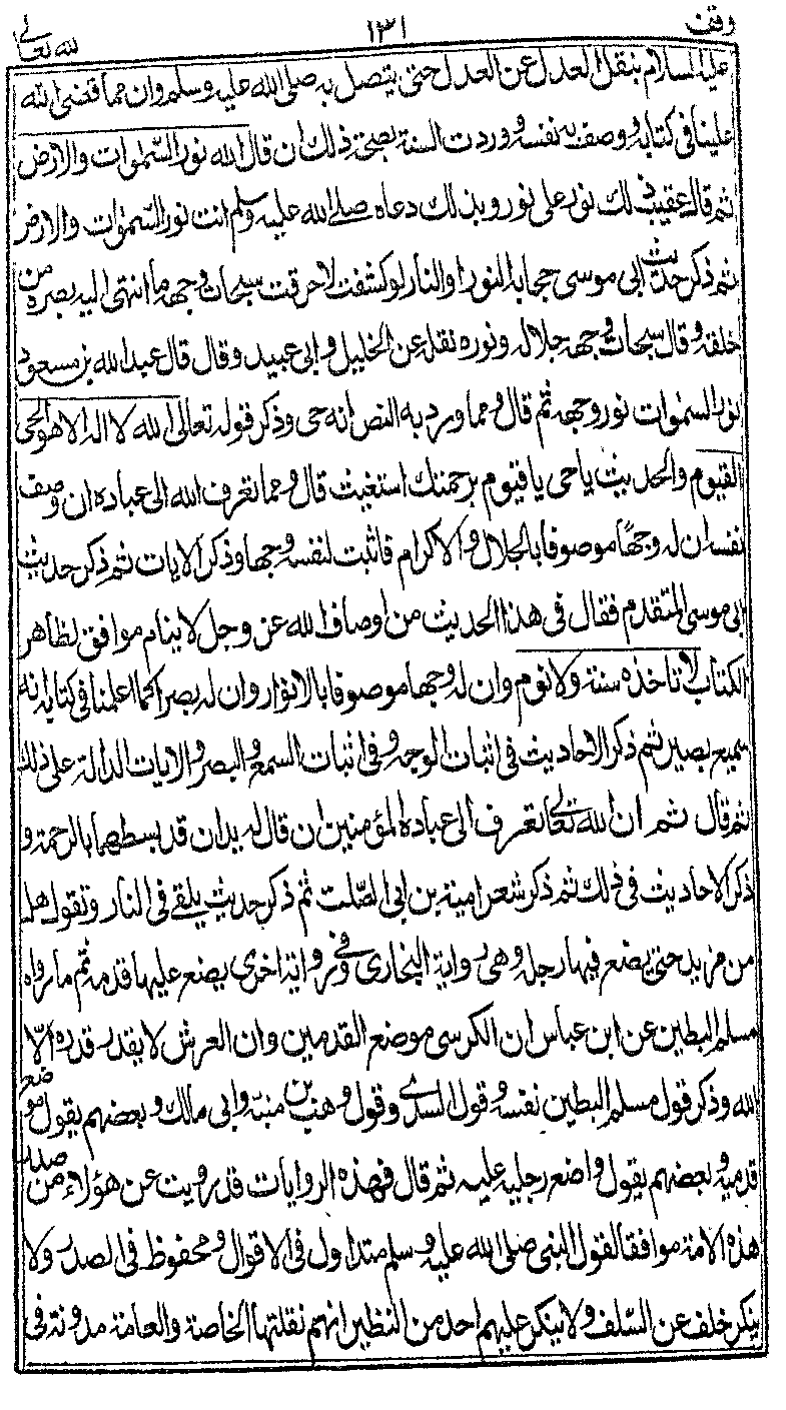 وقف ١٣١ لله تعالى
عليه السلام بنقل العدل عن العدل حتى يتصل به صلى الله عليه وسلم وان مما قضى الله
علينا فى كتابه ووصف به نفسه ووردت السنة بصحة ذلك ان قال الله نور السموات والارض
ثم قال عقيب ذلك نور على نور وبذلك دعاه صلى الله عليه وسلم انت نور السموات والارض
ثم ذكر حديث ابى موسى حجابه النور او النار لو كشفت لاحرقت سبحات وجهه ما انتهى اليه بصره من
خلقه وقال سبحات وجهه جلاله ونوره نقله عن الخليل وابى عبيد وقال قال عبد الله بن مسعود
نور السموات نور وجهه ثم قال ومما ورد به النص انه حى وذكر قوله تعالى الله لا اله الا هو الحى
القيوم والحديث ياحى ياقيوم برحمتك استغيث قال ومما تعرف الله الى عباده ان وصف
نفسه ان له وجهًا موصوفا بالجلال والاكرام فاثبت لنفسه وجها وذكر الايات ثم ذكر حديث
ابى موسى المتقدم فقال فى هذا الحديث من اوصاف الله عز وجل لاينام موافق لظاهر
الكتاب لا تاخذه سنة ولا نوم وان له وجها موصوفا بالانوار وان له بصرا كما اعلمنا فى كتابه انه
سميع بصير ثم ذكر الاحاديث فى اثبات الوجه وفى اثبات السمع والبصر والايات الدالة على ذلك
ثم قال ثم ان الله تعالى تعرف الى عباده المؤمنين ان قال له يدان قد بسطهما بالرحمة و
ذكر الاحاديث فى ذلك ثم ذكر شعر امية بن ابى الصلت ثم ذكر حديث يلقى فى النار وتقول هل
من مزيد حتى يضع فيها رجله وهى رواية البخارى وفى رواية اخرى يضع عليها قدمه ثم ما رواه
مسلم البطين عن ابن عباس ان الكرسى موضع القدمين وان العرش لا يقدر قدره الّا
الله وذكر قول مسلم البطين نفسه وقول السدى وقول وهب بن منبّه وابى مالك وبعضهم يقول موضع
قدميه وبعضهم يقول واضع رجليه عليه ثم قال فهذه الروايات قد رويت عن هؤلاء من صدر
هذه الامة موافقا لقول النبى صلى الله عليه وسلم متداول فى الاقوال ومحفوظ فى الصدر ولا
ينكر خلف عن السلف ولا ينكر عليهم احد من النظير انهم نقلتها الخاصة والعامة مدونة فى